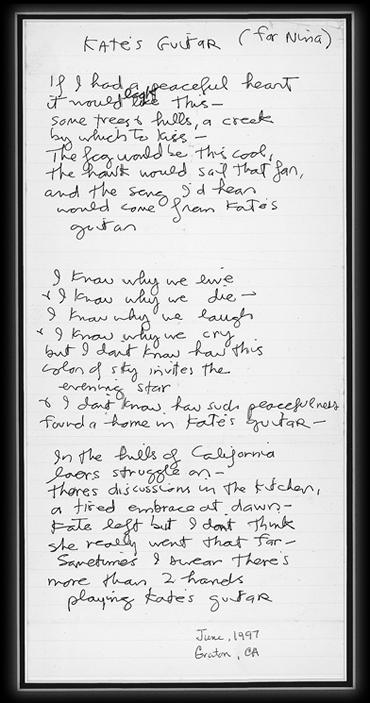 KATE'S GUITAR (for Nina)
If I had a peaceful heart
it would look like this –
some trees & hills, a creek
by which to kiss –
The fog would be this cool,
the hawk would sail that far,
and the song I'd hear
would come from Kate's
guitar
I know why we live
& I know why we die –
I know why we laugh
& I know why we cry
but I don't know how this
color of sky invites the
evening star
& I don't know how such peacefulness
found a home in Kate's guitar –
In the hills of California
lovers struggle on –
theres discussions in the kitchen,
a tired embrace at dawn –
Kate left but I dont think
she really went that far –
Sometimes I swear there's
more than 2 hands
playing Kate's guitar
June, 1997
Graton, CA